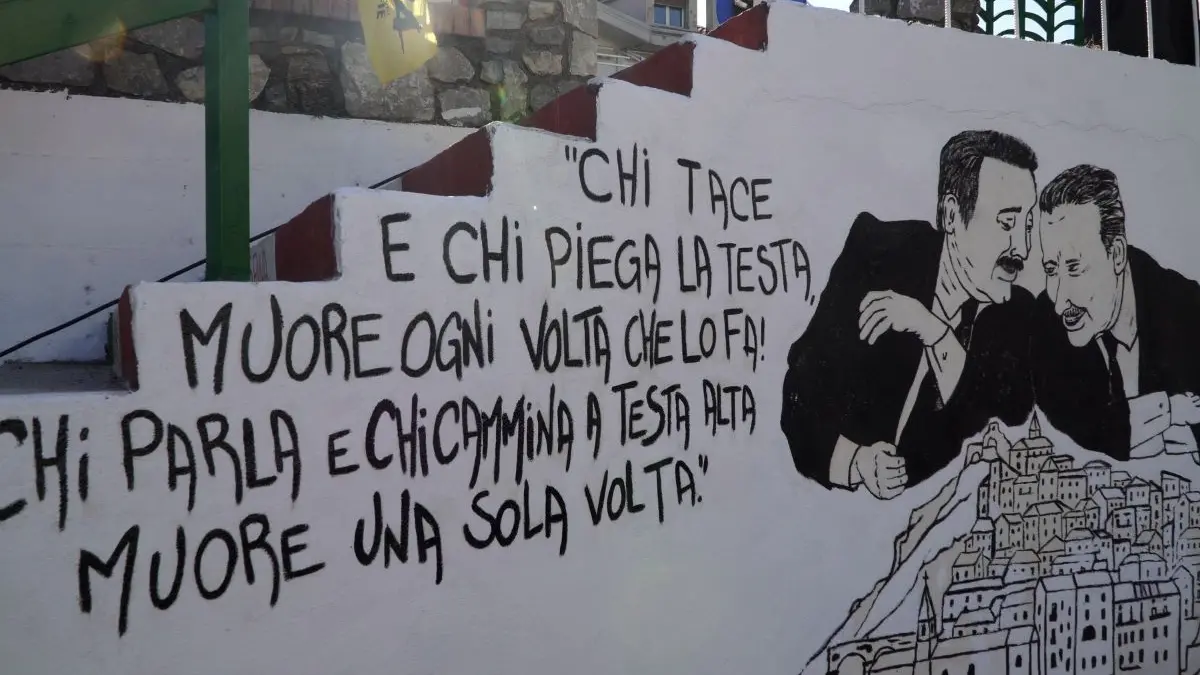 "CHI TACE
E CHI PIEGA LA TESTA,
MUORE OGNI VOLTA CHE LO FA!
CHI PARLA E CHI CAMMINA A TESTA ALTA
MUORE UNA SOLA VOLTA."